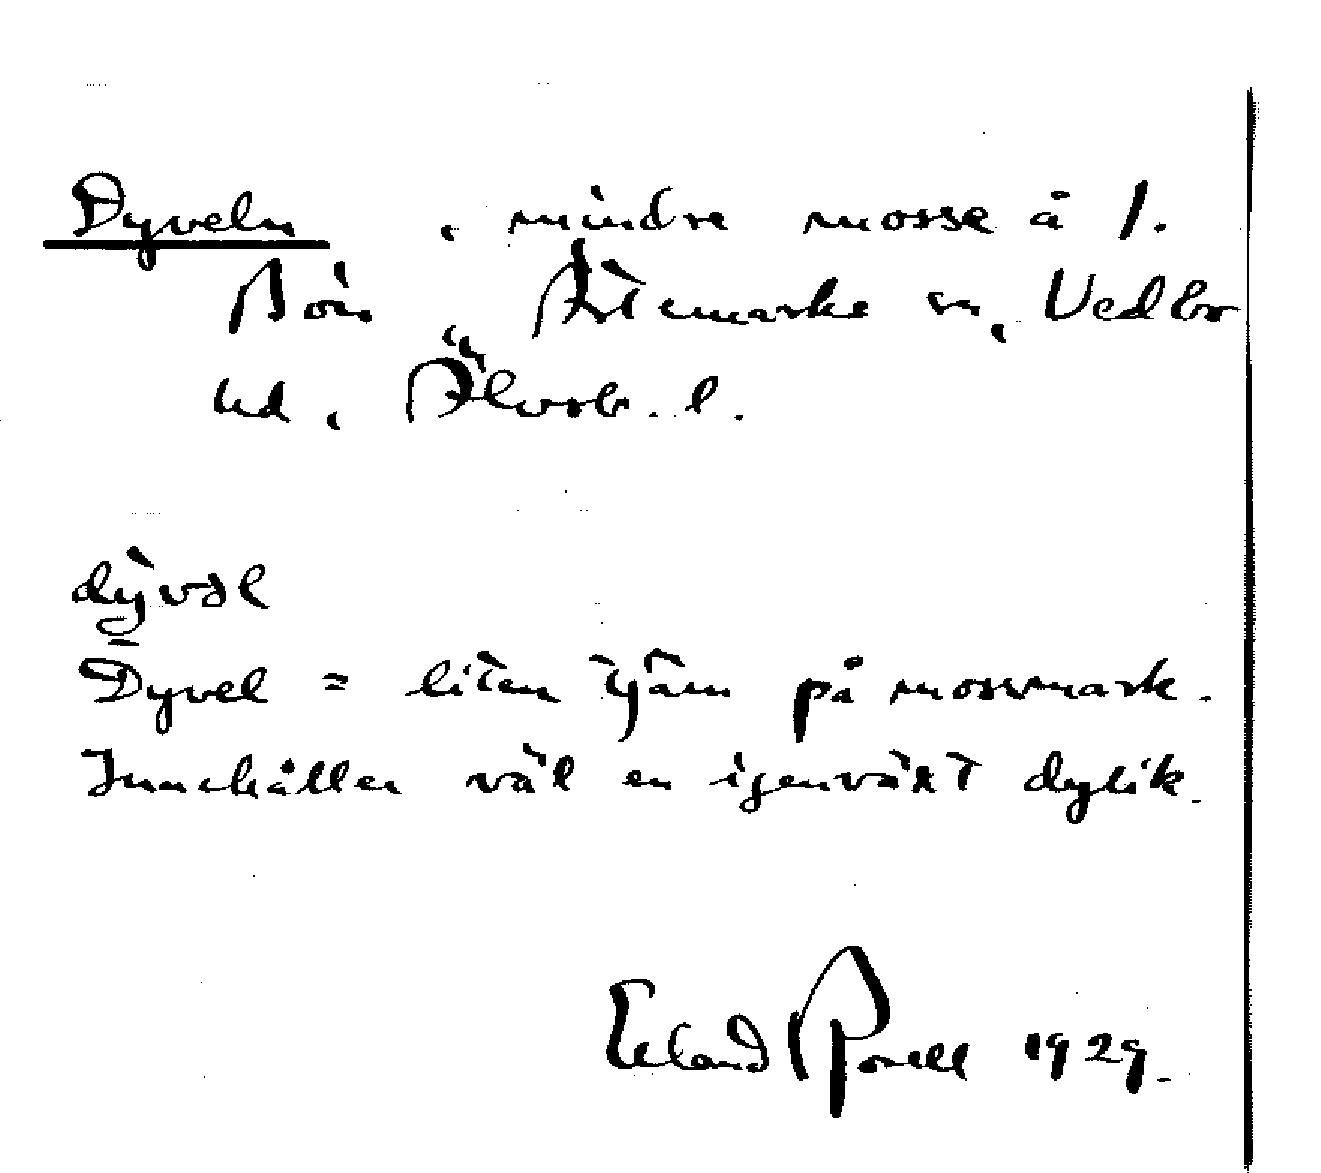 Dyveln , mindre mosse å f.
Bön , Ärtemarks sn, Vedbo
hd , Älvsb. l.
dỳvəl
Dyvel = liten tjärn på mossmark.
Innehåller väl en igenväxt dylik.
Erland Rosell 1929.